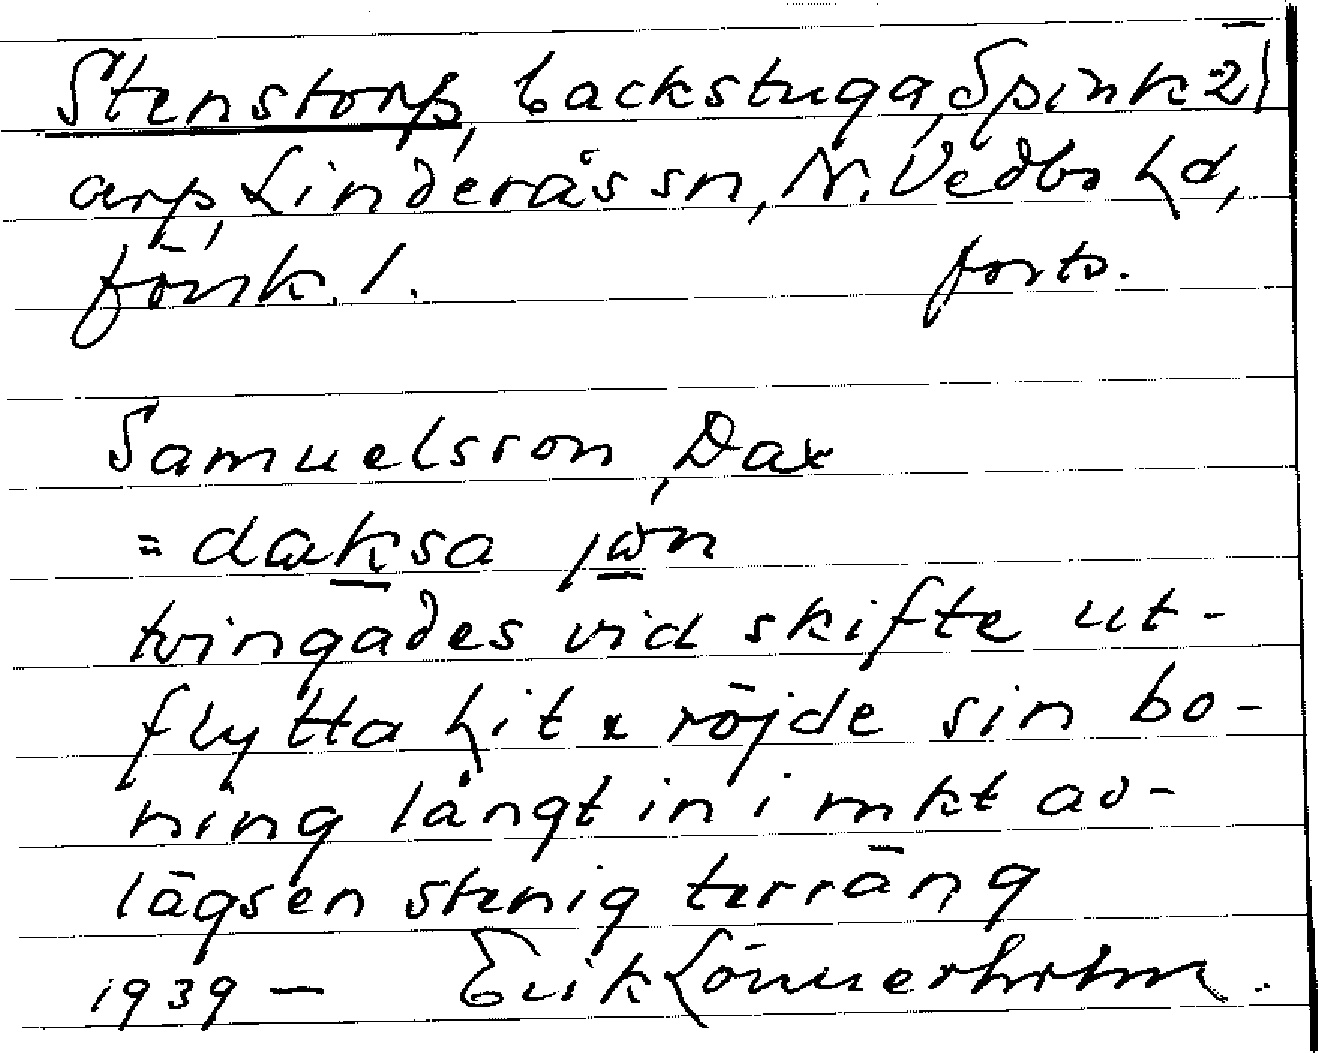 Stenstorp, backstuga, Spink 2)
arp, Linderås sn, N. Vedbo hd,
Jönk. l. forts.
Samuelsson, Dax
= daksa jon
tvingades vid skifte ut-
flytta hit & röjde sin bo-
ning långt in i mkt av-
lägsen stenig terräng
1939 — Erik Lönnerholm.